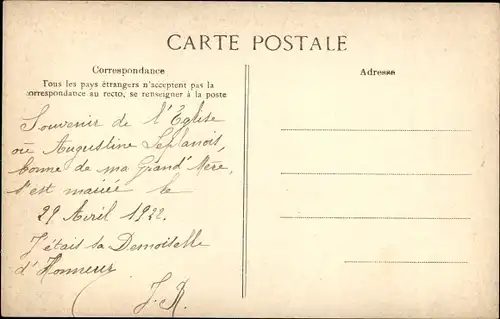 CARTE POSTALE
Correspondance
Tous les pays étrangers n'acceptent pas la
correspondance au recto, se renseigner à la poste
Adresse
Souvenir de l'Église
où Augustine
bonne de ma Grand' Mère,
s'est mariée le
29 Avril 1922.
J'étais sa Demoiselle
d'Honneur
J. R